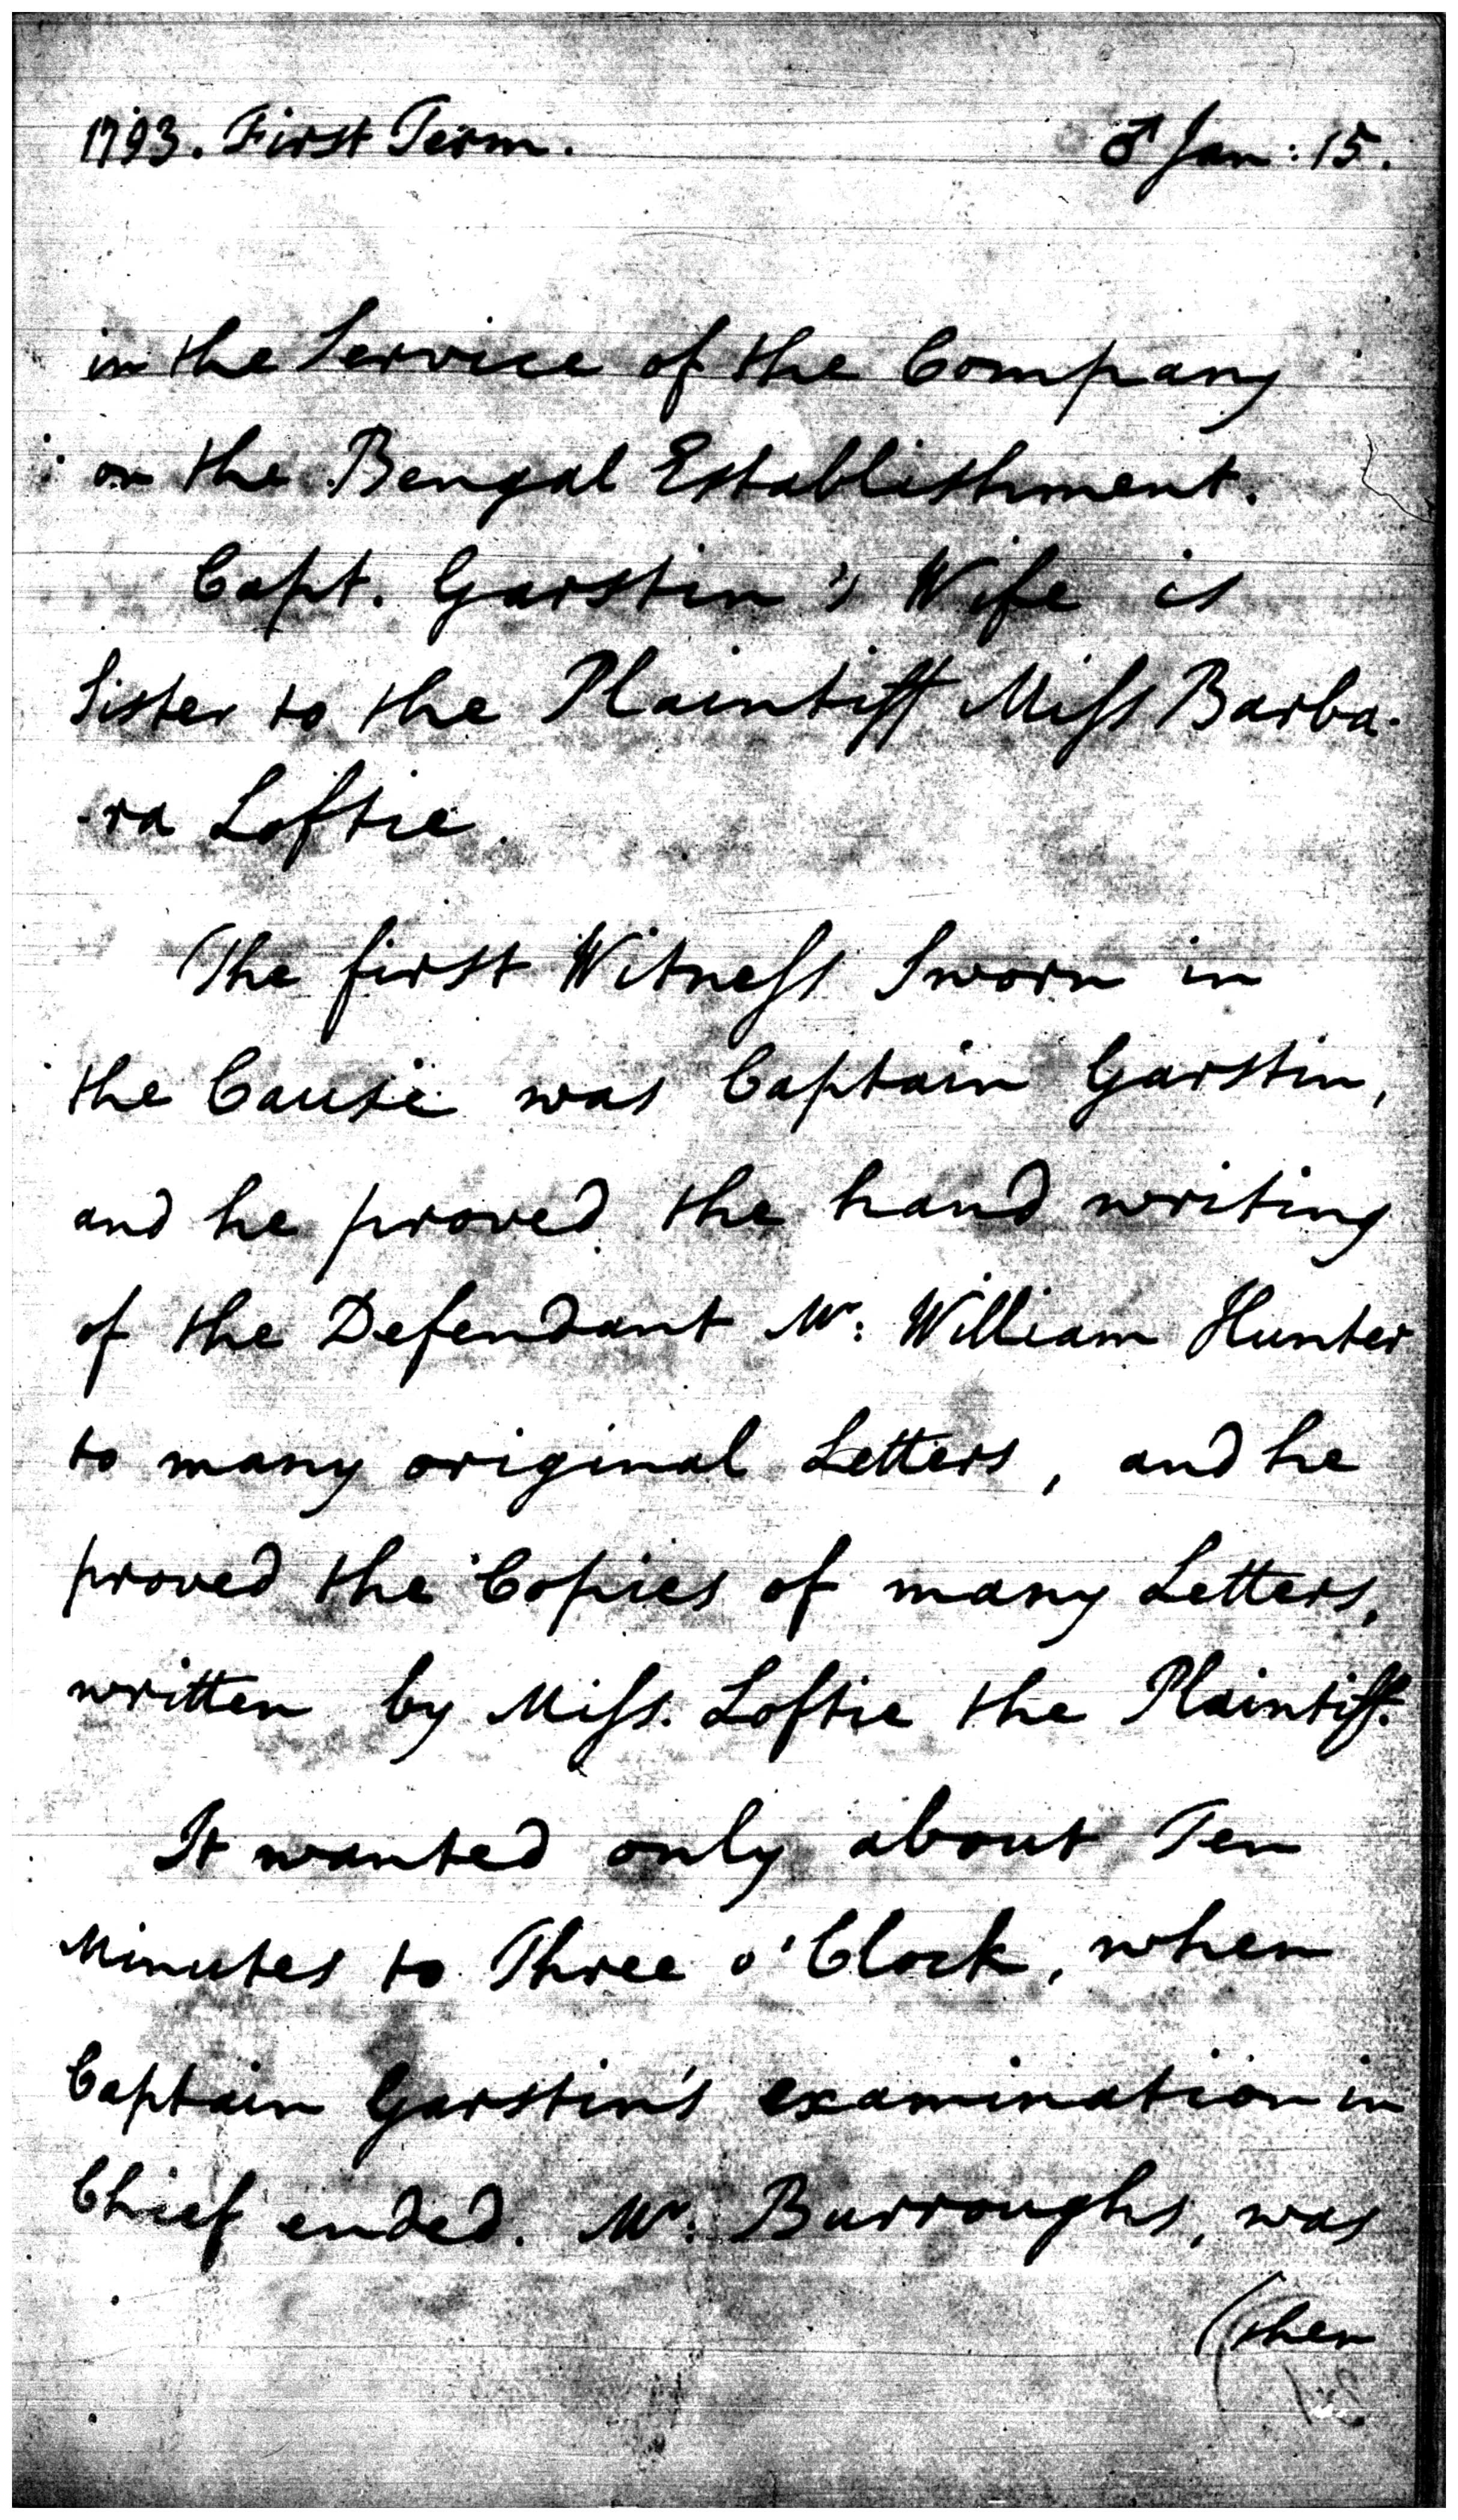 1793. First Term. ♂ Jan: 15.
in the Service of the Company
on the Bengal Establishment.
Capt. Garstin's Wife is
Sister to the Plaintiff Miſs Barba-
-ra Loftie.
The first Witneſs Sworn in
the Cause was Captain Garstin,
and he proved the hand writing
of the Defendant Mr: William Hunter
to many original Letters, and he
proved the Copies of many Letters,
written by Miſs. Loftie the Plaintiff.
It wanted only about Ten
Minutes to Three o'Clock, when
Captain Garstin's examination in
Chief ended. Mr: Burroughs, was
(then